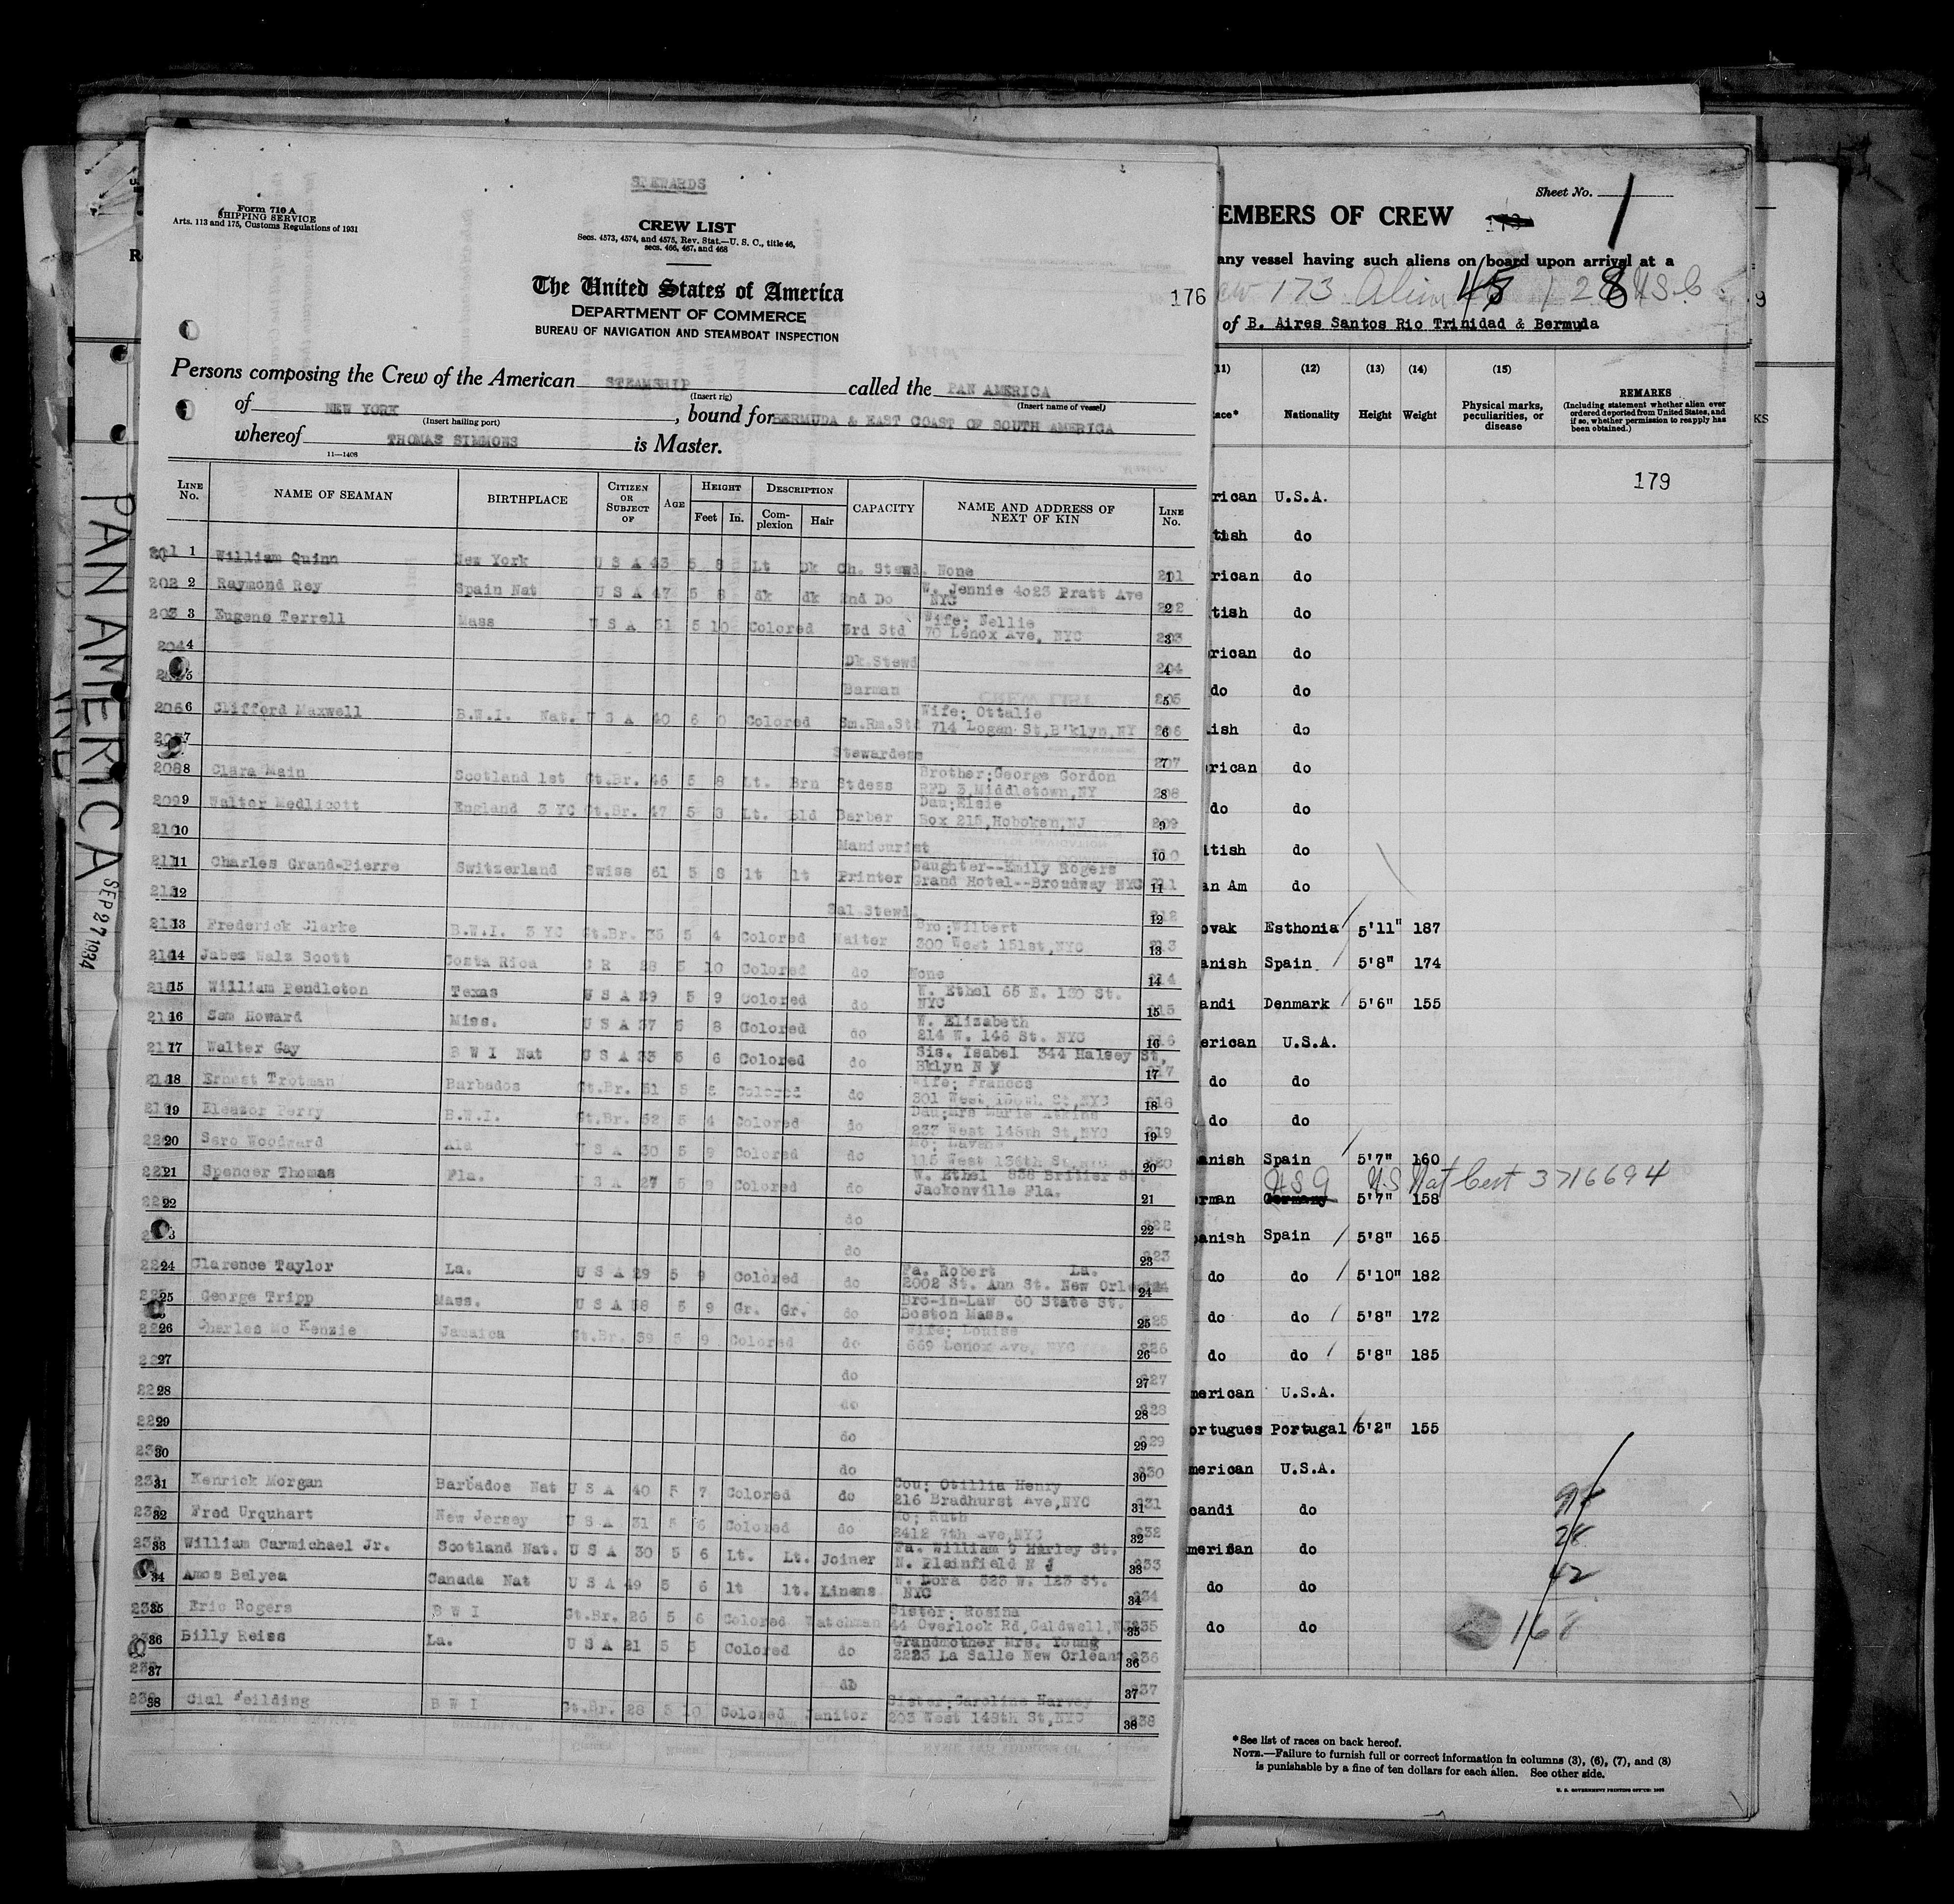 STEWARDS
Form 710 A
SHIPPING SERVICE
Arts. 113 and 175, Customs Regulations of 1931
CREW LIST
Secs. 4573, 4574, and 4575, Rev. Stat.—U. S. C., title 46,
secs. 466, 467, and 468
The United States of America
DEPARTMENT OF COMMERCE
BUREAU OF NAVIGATION AND STEAMBOAT INSPECTION
176
Persons composing the Crew of the American STEAMSHIP called the PAN AMERICA
(Insert rig) (Insert name of vessel)
of NEW YORK, bound for BERMUDA & EAST COAST OF SOUTH AMERICA
(Insert hailing port)
whereof THOMAS SIMMONS is Master.
11—1408
LINE No. NAME OF SEAMAN BIRTHPLACE CITIZEN OR SUBJECT OF AGE HEIGHT Feet In. DESCRIPTION Complexion Hair CAPACITY NAME AND ADDRESS OF NEXT OF KIN LINE No.
201 1 William Quinn New York U S A 43 5 8 Lt Dk Ch. Stewd. None 1
202 2 Raymond Rey Spain Nat U S A 47 5 8 dk dk 2nd Do W. Jennie 4023 Pratt Ave NYC 2
203 3 Eugene Terrell Mass U S A 51 5 10 Colored 3rd Std Wife: Nellie 70 Lenox Ave, NYC 3
204 4 Dk.Stewd 4
5 Barman 5
206 6 Clifford Maxwell B.W.I. Nat. U S A 40 6 0 Colored Sm.Rm.Std Wife: Ottalie 714 Logan St,B'klyn,NY 6
7 Stewardess 7
208 8 Clara Main Scotland 1st Gt.Br. 46 5 8 Lt. Brn Stdess Brother:George Gordon RFD 3,Middletown,NY 8
209 9 Walter Medlicott England 3 YC Gt.Br. 47 5 3 Lt. Bld Barber Dau:Elsie Box 215,Hoboken,NJ 9
210 10 Manicurist 10
211 11 Charles Grand-Pierre Switzerland Swiss 61 5 8 lt lt Printer Daughter--Emily Rogers Grand Hotel--Broudway NYC 11
212 12 Sal Stewd. 12
213 13 Frederick Clarke B.W.I. 3 YC Gt.Br. 35 5 4 Colored Waiter Bro:Wilbert 300 West 151st,NYC 13
214 14 Jabez Nalz Scott Costa Rica C R 28 5 10 Colored do None 14
215 15 William Pendleton Texas U S A 29 5 9 Colored do W. Ethel 65 E. 130 St. NYC 15
216 16 Sam Howard Miss. U S A 37 5 8 Colored do W. Elizabeth 214 W. 146 St. NYC 16
217 17 Walter Gay B W I Nat U S A 33 5 6 Colored do Sis. Isabel 344 Halsey St, Bklyn N Y 17
218 18 Ernest Trotman Barbados Gt.Br. 51 5 Colored do Wife: Frances 301 West St,NYC 18
219 19 Eleazor Perry B.W.I. Gt.Br. 52 5 4 Colored do Dau:Mrs Marie Atkins 237 West 148th St,NYC 19
220 20 Saro Woodward Ala U S A 30 5 9 Colored do Mo: 115 West 136th St 20
221 21 Spencer Thomas Fla. U S A 27 5 9 Colored do W. Ethel 838 Britier St. Jackonville Fla. 21
22 do 22
3 do 23
224 24 Clarence Taylor La. U S A 29 5 9 Colored do Fa. Robert La. 2002 St. Ann St. New Orleans 24
25 George Tripp Mass. U S A 38 5 9 Gr. Gr. do Bro-in-Law 60 State St. Boston Mass. 25
226 26 Charles Mc Kenzie Jamaica Gt.Br. 39 5 9 Colored do Wife: Louise 669 Lenox Ave, NYC 26
27 do 27
228 28 do 28
229 29 do 29
230 30 do 30
231 31 Kenrick Morgan Barbados Nat U S A 40 5 7 Colored do Cou: Otillia Henry 216 Bradhurst Ave,NYC 31
232 32 Fred Urquhart New Jersey U S A 31 5 6 Colored do Mo; Ruth 2412 7th Ave,NYC 32
233 33 William Carmichael Jr. Scotland Nat. U S A 30 5 6 Lt. Lt. Joiner Fa. William 9 Harley St. N. Plainfield N J 33
34 Amos Belyea Canada Nat U S A 49 5 6 lt lt. Linens W. Dora 525 W. 123 St. NYC 34
235 35 Eric Rogers B W I Gt.Br. 26 5 6 Colored Watchman Sister: Rosina 44 Overlook Rd,Caldwell,NJ 35
36 Billy Reiss La. U S A 21 5 3 Colored do Grandmother Mrs. Young 2223 La Salle New Orleans 36
237 37 do 37
238 38 Cial Feilding B W I Gt.Br. 28 5 10 Colored Janitor Sister:Caroline Harvey 203 West 148th St,NYC 38
PAN AMERICA SEP 27 1934
Sheet No. 1
EMBERS OF CREW
any vessel having such aliens on board upon arrival at a
173 Alien 45 128 USC
of B. Aires Santos Rio Trinidad & Bermuda
11) (12) (13) (14) (15)
ace* Nationality Height Weight Physical marks, peculiarities, or disease REMARKS
(Including statement whether alien ever ordered deported from United States, and if so, whether permission to reapply has been obtained.)
179
rican U.S.A.
tish do
rican do
tish do
rican do
do do
ish do
rican do
do do
itish do
an Am do
ovak Esthonia 5'11" 187
anish Spain 5'8" 174
andi Denmark 5'6" 155
erican U.S.A.
do do
do do
anish Spain 5'7" 160
USA US Nat Cert 3716694
rman Germany 5'7" 158
anish Spain 5'8" 165
do do 5'10" 182
do do 5'8" 172
do do 5'8" 185
merican U.S.A.
ortugues Portugal 5'2" 155
merican U.S.A.
candi do
merican do
do do
do do
98
28
42
168
*See list of races on back hereof.
NOTE.—Failure to furnish full or correct information in columns (3), (6), (7), and (8)
is punishable by a fine of ten dollars for each alien. See other side.